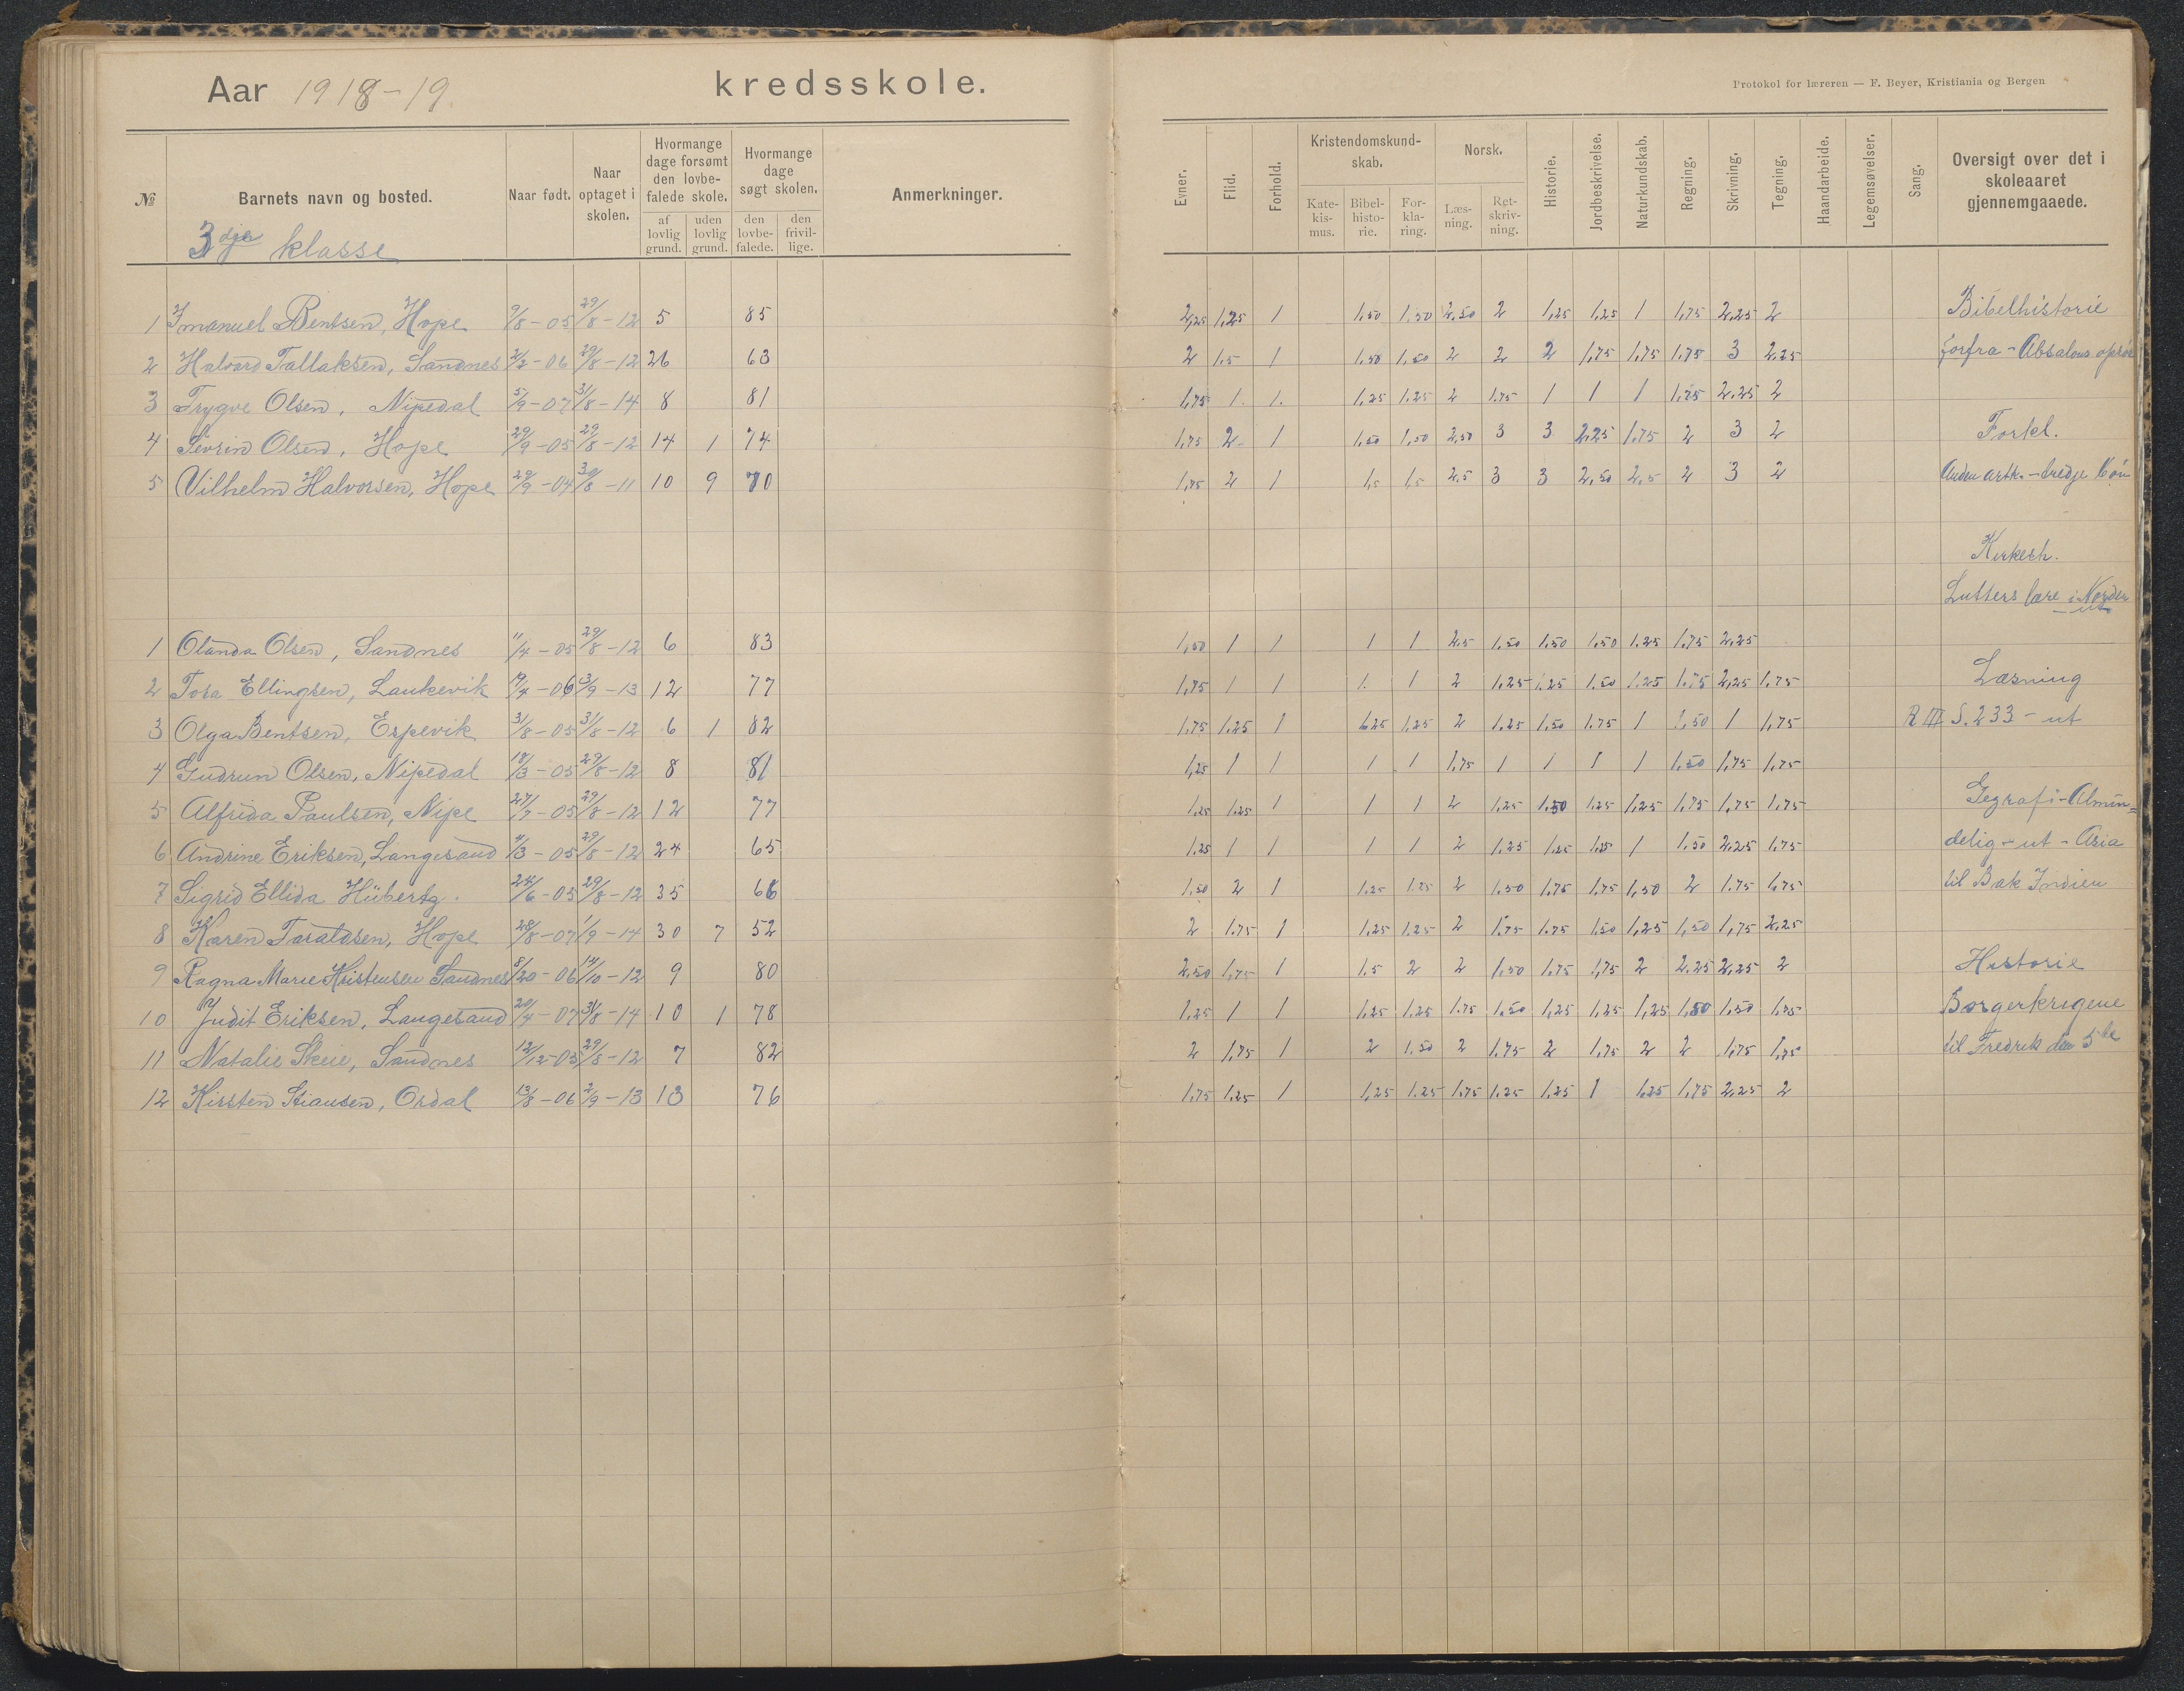 Aar 1918-19. kredsskole.
Protokol for læreren — F. Beyer, Kristiania og Bergen
№ Barnets navn og bosted. Naar født. Naar optaget i skolen. Hvormange dage forsømt den lovbefalede skole. af lovlig grund. uden lovlig grund. Hvormange dage søgt skolen. den lovbefalede. den frivillige. Anmerkninger.
Evner. Flid. Forhold. Kristendomskundskab. Katekismus. Bibelhistorie. Forklaring. Norsk. Læsning. Retskrivning. Historie. Jordbeskrivelse. Naturkundskab. Regning. Skrivning. Tegning. Haandarbeide. Legemsøvelser. Sang. Oversigt over det i skoleaaret gjennemgaaede.
3dje klasse
1 Imanuel Bentsen, Hope 9/8-05 29/8-12 5 85 2,25 1,25 1 1,50 1,50 2,50 2 1,25 1,25 1 1,75 2,25 2 Bibelhistorie
2 Halvard Tallaksen, Sandnes 2/2-06 29/8-12 26 63 2 1,5 1 1,50 1,50 2 2 2 1,75 1,75 1,75 3 2,25 forfra - Absalons oprør
3 Trygve Olsen, Nipedal 5/9-07 31/8-14 8 81 1,75 1. 1. 1,25 1,25 2 1,75 1 1 1 1,75 2,25 2
4 Sevrin Olsen, Hope 29/9-05 29/8-12 14 1 74 1,75 2 1 1,50 1,50 2,50 3 3 2,25 1,75 2 3 2 Forkl.
5 Vilhelm Halvorsen, Hope 29/9-04 30/8-11 10 9 70 1,75 2 1 1,5 1,5 2,5 3 3 2,50 2,5 2 3 2 Anden artk. - tredje bøn
Kirkeh.
Lutters lære i Norden ut
1 Olanda Olsen, Sandnes 11/4-05 29/8-12 6 83 1,50 1 1 1 1 2,5 1,50 1,50 1,50 1,25 1,75 2,25
2 Tora Ellingsen, Laukevik 19/4-06 3/9-13 12 77 1,75 1 1 1. 1 2 1,25 1,25 1,50 1,25 1,75 2,25 1,75 Læsning
3 Olga Bentsen, Espevik 31/8-05 31/8-12 6 1 82 1,75 1,25 1 1,25 1,25 2 1,25 1,50 1,75 1 1,50 1 1,75 R III S. 233 - ut
4 Gudrun Olsen, Nipedal 18/3-05 29/8-12 8 81 1,25 1 1 1 1 1,75 1 1 1 1 1,50 1,75 1,75
5 Alfrida Paulsen, Nipe 27/7-05 29/8-12 12 77 1,25 1,25 1 1 1 2 1,25 1,50 1,25 1,25 1,75 1,75 1,75 Gegrafi - Almin=
6 Andrine Eriksen, Langesand 11/3-05 29/8-12 24 65 1,25 1 1 1 1 2 1,25 1,25 1,25 1 1,50 2,25 1,75 delig - ut - Asia
7 Sigrid Ellida Hübertz. 24/6-05 29/8-12 35 66 1,50 2 1 1,25 1,25 2 1,50 1,75 1,75 1,50 2 1,75 1,75 til Bak Indien
8 Karen Taraldsen, Hope 28/8-07 1/9-14 30 7 52 2 1,75 1 1,25 1,25 2 1,75 1,75 1,50 1,25 1,50 1,75 2,25
9 Ragna Marie Kristensen Sandnes 8/20-06 14/10-12 9 80 2,50 1,75 1 1,5 2 2 1,50 1,75 1,75 2 2,25 2,25 2 Historie
10 Judit Eriksen, Langesand 20/4-07 31/8-14 10 1 78 1,25 1 1 1,25 1,25 1,75 1,50 1,25 1,25 1,25 1,50 1,50 1,75 Borgerkrigene
11 Natalie Skeie, Sandnes 12/12-05 29/8-12 7 82 2 1,75 1 2 1,50 2 1,75 2 1,75 2 2 1,75 1,75 til Fredrik den 5te
12 Kirsten Stiansen, Ordal 13/8-06 2/9-13 13 76 1,75 1,25 1 1,25 1,25 1,75 1,25 1,25 1 1,25 1,75 2,25 2